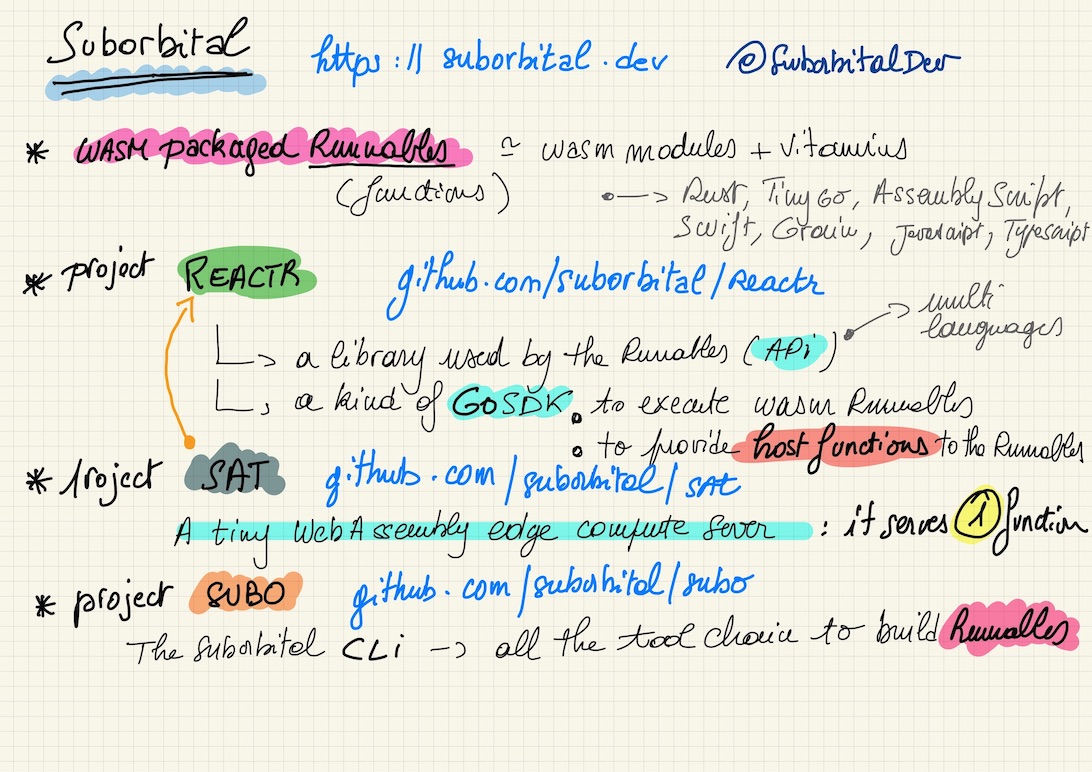 Suborbital https://suborbital.dev @SuborbitalDev
* WASM packaged Runnables ≃ wasm modules + vitamins
(functions)
•—> Rust, TinyGo, AssemblyScript,
Swift, Grain, Javascript, Typescript
* project REACTR github.com/suborbital/reactr
multi
languages
└─> a library used by the Runables (API)
└─> a kind of GoSDK • to execute wasm Runnables
• to provide host functions to the Runnables
* project SAT github.com/suborbital/sat
A tiny WebAssembly edge compute sever : it serves 1 function
* project SUBO github.com/suborbital/subo
The suborbital CLi -> all the tool chain to build Runnables